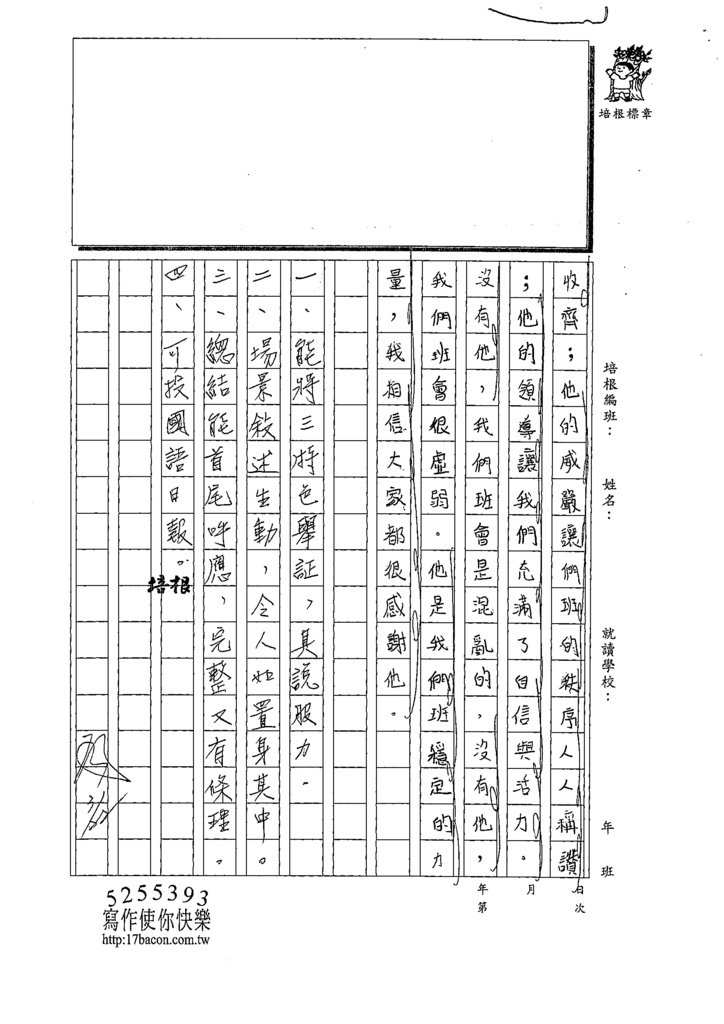 培根標章
培根編班：
姓名：
就讀學校：
年 班
收齊；他的威嚴讓們班的秩序人人稱讚
；他的領導讓我們充滿了自信與活力。
沒有他，我們班會是混亂的，沒有他，
我們班會很虛弱。他是我們班穩定的力
量，我相信大家都很感謝他。
一、能將三特色舉証，具說服力。
二、場景敘述生動，令人如置身其中。
三、總結能首尾呼應，完整又有條理。
四、可投國語日報。
培根
年 月 日
第 次
5255393
寫作使你快樂
http:17bacon.com.tw